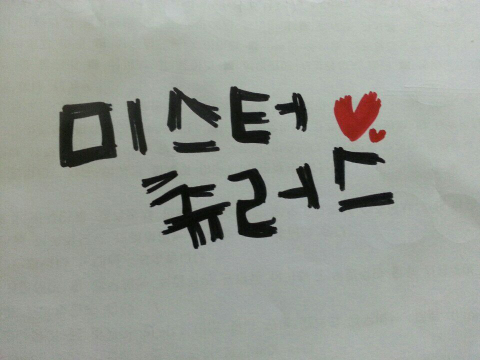 미스터
츄러스